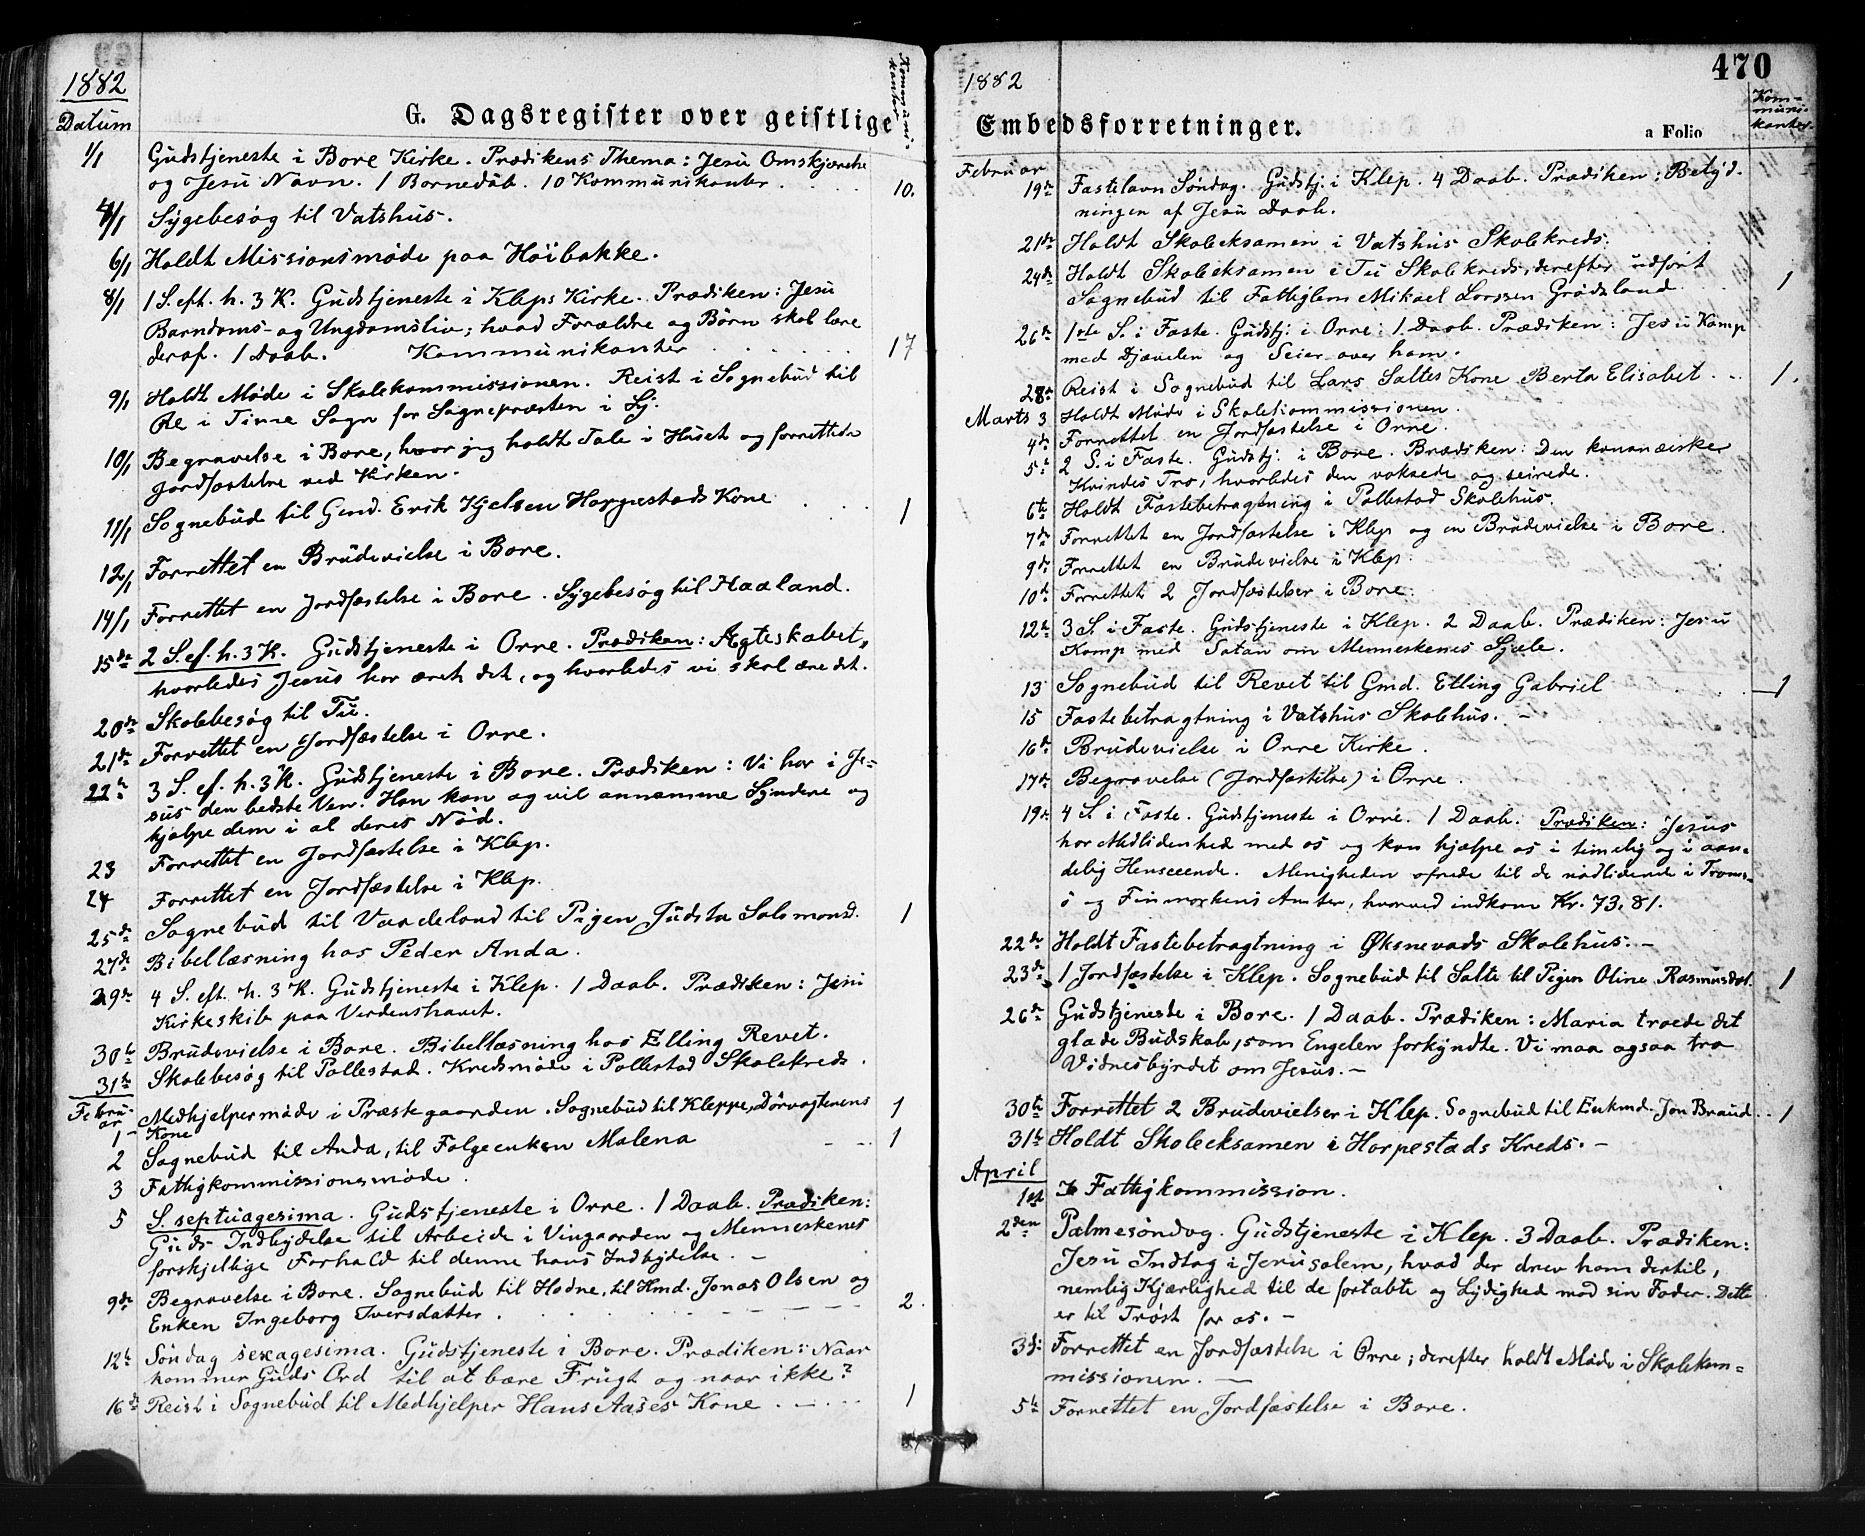 1882
Datum
G. Dagsregister over geistlige
Kommuni-
kanter.
1/1 Gudstjeneste i Bore Kirke. Prædikens Thema: Jesu Omskjærelse
og Jesu Navn. 1 Barnedaab. 10 Kommunikanter. 10.
4/1 Sygebesøg til Vatshus.
6/1 Holdt Missionsmøde paa Høibakke.
8/1 1 S. eft. h. 3 K. Gudstjeneste i Kleps Kirke. Prædiken: Jesu
Barndoms- og Ungdomsliv; hvad Forældre og Børn skal lære
deraf. 1 Daab. Kommunikanter 17
9/1 Holdt Møde i Skolekommissionen. Reist i Sognebud til
Re i Time Sogn for Sognepræsten i Lj.
10/1 Begravelse i Bore, hvor jeg holdt Tale i Huset og forrettede
Jordfæstelse ved Kirken.
11/1 Sognebud til Gmd. Erik Kjelsen Horpestads Kone 1
12/1 Forrettet en Brudevielse i Bore.
14/1 Forrettet en Jordfæstelse i Bore. Sygebesøg til Haaland.
15de 2 S. ef. h. 3 K. Gudstjeneste i Orre. Prædiken: Ægteskabet,
hvorledes Jesus har æret det, og hvorledes vi skal ære det.
20de Skolebesøg til Tu.
21de Forrettet en Jordfæstelse i Orre.
22de 3 S. ef. h. 3 K. Gudstjeneste i Bore. Prædiken: Vi har i Je-
sus den bedste Ven. Han kan og vil annamme Syndere og
hjælpe dem i al deres Nød.
23 Forrettet en Jordfæstelse i Klep.
24 Forrettet en Jordfæstelse i Klep.
25de Sognebud til Vardeland til Pigen Judsta Salomonsd. 1
27de Bibellæsning hos Peder Anda.
29de 4 S. eft. h. 3 K. Gudstjeneste i Klep. 1 Daab. Prædiken: Jesu
Kirkeskib paa Verdenshavet.
30te Brudevielse i Bore. Bibellæsning hos Elling Revet.
31te Skolebesøg til Pollestad. Kredsmøde i Pollestad Skolekreds.
Februar
1 Medhjelpermøde i Præstegaarden. Sognebud til Kleppe, Dørvogterens 1
Kone
2 Sognebud til Anda, til Folgeenken Malena 1
3 Fattigkommissionsmøde.
5 S. septuagesima. Gudstjeneste i Orre. 1 Daab. Prædiken:
Guds Indbydelse til Arbeide i Vingaarden og Menneskenes
forskjellige Forhold til denne hans Indbydelse. –
9de Begravelse i Bore. Sognebud til Hodne, til Hmd. Jonas Olsen og
Enken Ingeborg Iversdatter. 2.
12te Søndag sexagesima. Gudstjeneste i Bore. Prædiken: Naar
kommer Guds Ord til at bære Frugt og naar ikke?
16de Reist i Sognebud til Medhjelper Hans Aases Kone 1
1882
470
Embedsforretninger.
a Folio
Kom-
muni-
kanter.
Februar
19de Fastelavn Søndag. Gudstj. i Klep. 4 Daab. Prædiken: Betyd-
ningen af Jesu Daab.
21de Holdt Skoleeksamen i Vatshus Skolekreds.
24de Holdt Skoleeksamen i Tu Skolekreds, derefter udført
Sognebud til Fattiglem Mikael Larssen Grødeland 1
26de 1ste S. i Faste. Gudstj. i Orre. 1 Daab. Prædiken: Jesu Kamp
med Djævelen og Seier over ham.
28de Reist i Sognebud til Lars Saltes Kone Berta Elisabet 1.
Marts 3 Holdt Møde i Skolekommissionen.
4de Forrettet en Jordfæstelse i Orre.
5te 2 S. i Faste. Gudstj. i Bore. Prædiken: Den kananæiske
Kvindes Tro, hvorledes den voksede og seirede.
6te Holdt Fastebetragtning i Pollestad Skolehus.
7de Forrettet en Jordfæstelse i Klep og en Brudevielse i Bore.
9de Forrettet en Brudevielse i Klep.
10de Forrettet 2 Jordfæstelser i Bore.
12te 3 S. i Faste. Gudstjeneste i Klep. 2 Daab. Prædiken: Jesu
Kamp med Satan om Menneskenes Sjæle.
13 Sognebud til Revet til Gmd. Elling Gabriel 1
15 Fastebetragtning i Vatshus Skolehus. –
16de Brudevielse i Orre Kirke.
17de Begravelse (Jordfæstelse) i Orre.
19de 4 S. i Faste. Gudstjeneste i Orre. 1 Daab. Prædiken: Jesus
har Medlidenhed med os og kan hjælpe os i timelig og i aan-
delig Henseende. Menigheden ofrede til de nødlidende i Troms-
ø og Finmarkens Amter, hvorved indkom Kr. 73,81.
22de Holdt Fastebetragtning i Øksnevads Skolehus. –
23de 1 Jordfæstelse i Klep. Sognebud til Salte til Pigen Oline Rasmusdat. 1
26de Gudstjeneste i Bore. 1 Daab. Prædiken: Maria troede det
glade Budskab, som Engelen forkyndte. Vi maa ogsaa tro
Vidnesbyrdet om Jesus. –
30te Forrettet 2 Brudevielser i Klep. Sognebud til Enkmd. Jon Braud 1
31te Holdt Skoleeksamen i Horpestads Kreds. –
April
1st Fattigkommission.
2den Palmesøndag. Gudstjeneste i Klep. 3 Daab. Prædiken:
Jesu Indtog i Jerusalem, hvad der drev ham dertil,
nemlig Kjærlighed til de fortabte og Lydighed mod sin Fader. Dette
er til Trøst for os. –
3di Forrettet en Jordfæstelse i Orre; derefter holdt Møde i Skolekom-
missionen. –
5te Forrettet en Jordfæstelse i Bore.